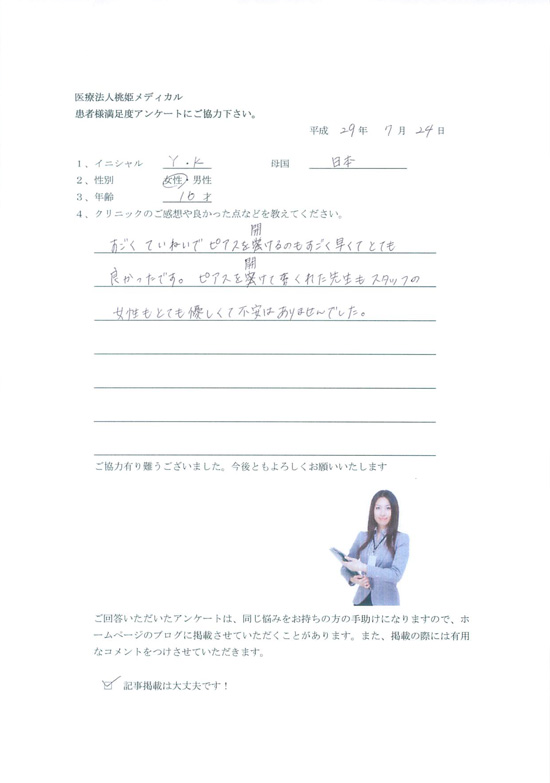 医療法人桃姫メディカル
患者様満足度アンケートにご協力下さい。
平成 29年 7月 24日
1、イニシャル Y・K 母国 日本
2、性別 女性・男性
3、年齢 16才
4、クリニックのご感想や良かった点などを教えてください。
開
すごく ていねいで ピアスを けるのもすごく早くて とても
開
良かったです。 ピアスを けて くれた先生も スタッフの
女性もとても優しくて不安はありませんでした。
ご協力有り難うございました。今後ともよろしくお願いいたします
ご回答いただいたアンケートは、同じ悩みをお持ちの方の手助けになりますので、ホ
ームページのブログに掲載させていただくことがあります。また、掲載の際には有用
なコメントをつけさせていただきます。
記事掲載は大丈夫です！